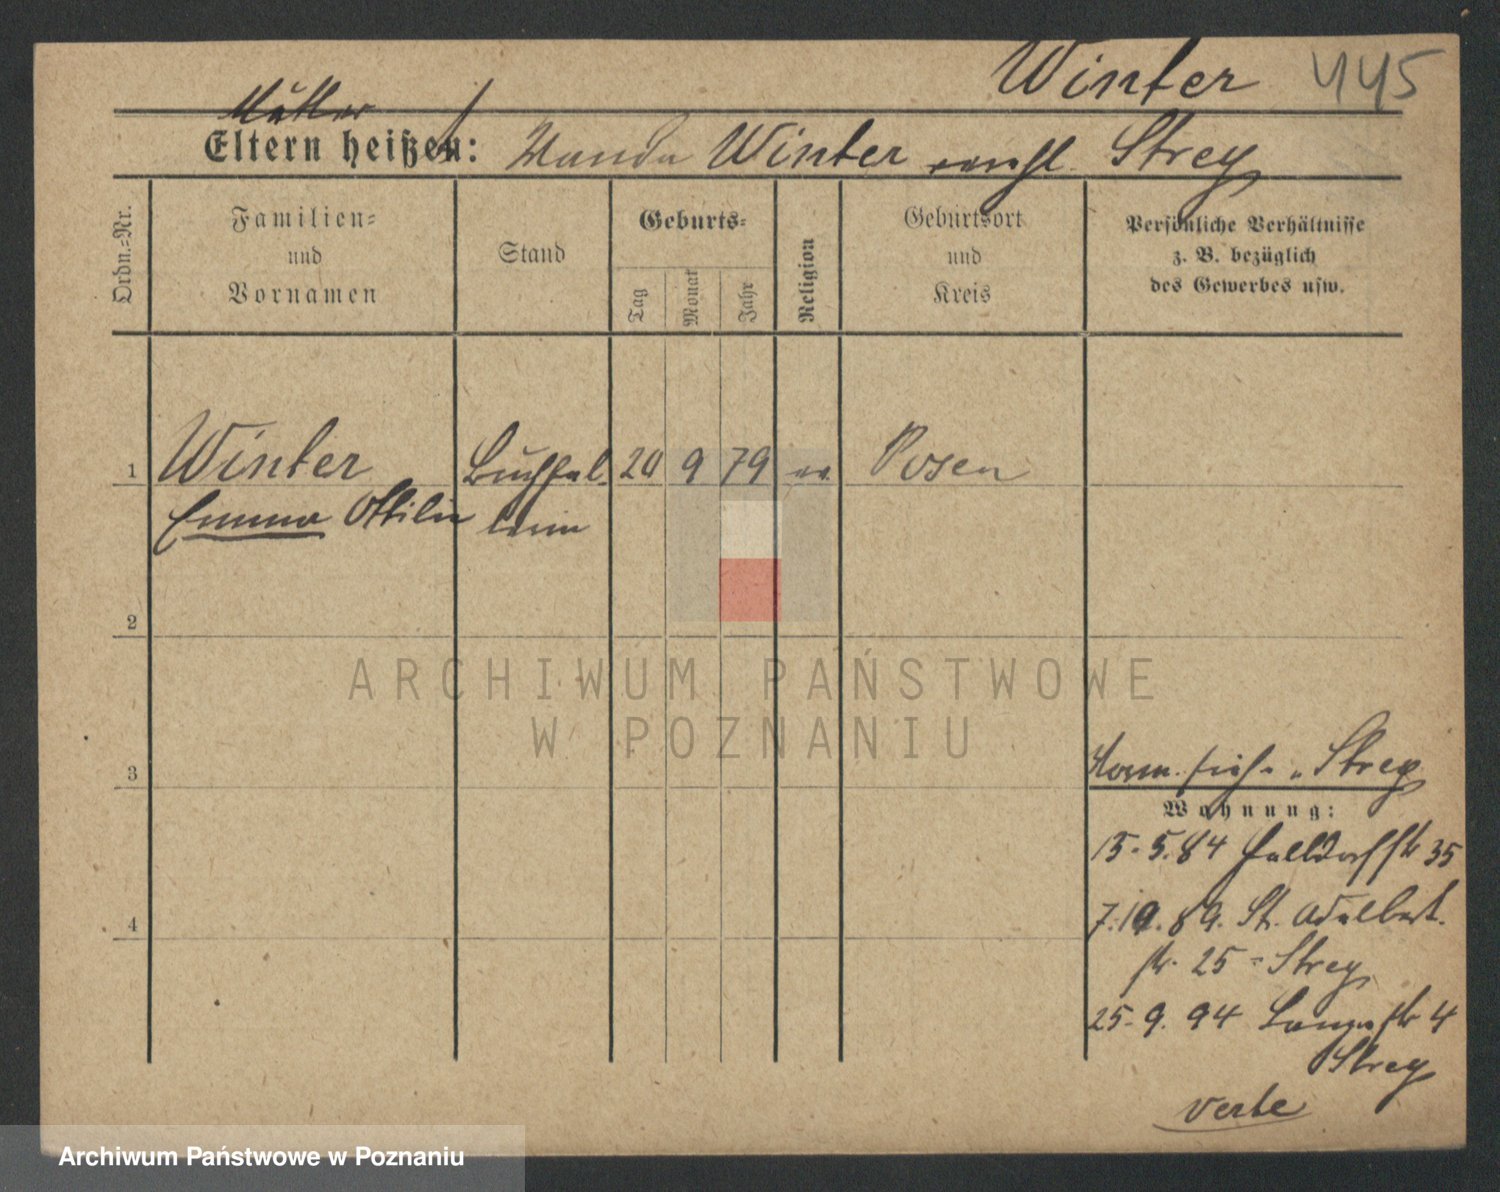 Winter 445
Mutter
Eltern heißen: Wanda Winter verehl. Strey
Ordn.-Nr.
Familien-
und
Vornamen
Stand
Geburts-
Tag
Monat
Jahr
Religion
Geburtsort
und
Kreis
Persönliche Verhältnisse
z. B. bezüglich
des Gewerbes usw.
1 Winter Buchhal- 20 9 79 ev. Posen
Emma Ottilie terin
2
ARCHIWUM PAŃSTWOWE
W POZNANIU
3
Strey
Wohnung:
15.5.84 Halldorfstr 35
4
7.10.89. St. Adalbert-
str. 25 = Strey
25.9.94 Langestr 4
Strey
verte
Archiwum Państwowe w Poznaniu